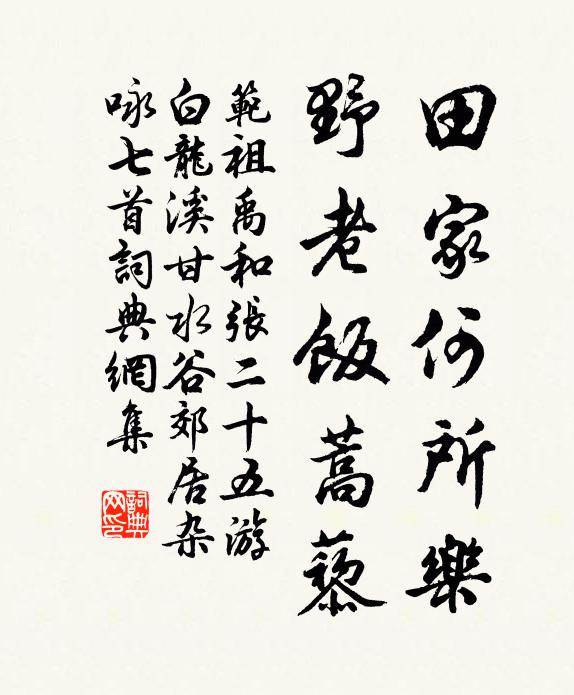 田家何所樂
野老飯蒿藜
範祖禹和張二十五游
白龍溪甘水谷郊居杂
咏七首詞典網集
詞典
网印